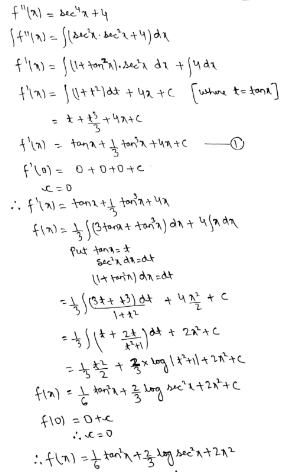 f''(x) = sec⁴x + 4
∫f''(x) = ∫(sec²x · sec²x + 4) dx
f'(x) = ∫(1 + tan²x) · sec²x dx + ∫4 dx
f'(x) = ∫(1 + t²) dt + 4x + c [where t = tanx]
= t + t³/3 + 4x + c
f'(x) = tanx + 1/3 tan³x + 4x + c —①
f'(0) = 0 + 0 + 0 + c
c = 0
∴ f'(x) = tanx + 1/3 tan³x + 4x
f(x) = 1/3 ∫(3tanx + tan³x) dx + 4∫x dx
Put tanx = t
sec²x dx = dt
(1 + tan²x) dx = dt
= 1/3 ∫(3t + t³) dt / 1 + t² + 4 x²/2 + c
= 1/3 ∫(t + 2t/t²+1) dt + 2x² + c
= 1/3 t²/2 + 2/3 × log|t²+1| + 2x² + c
f(x) = 1/6 tan²x + 2/3 log sec²x + 2x² + c
f(0) = 0 + c
∴ c = 0
∴ f(x) = 1/6 tan²x + 2/3 log sec²x + 2x²